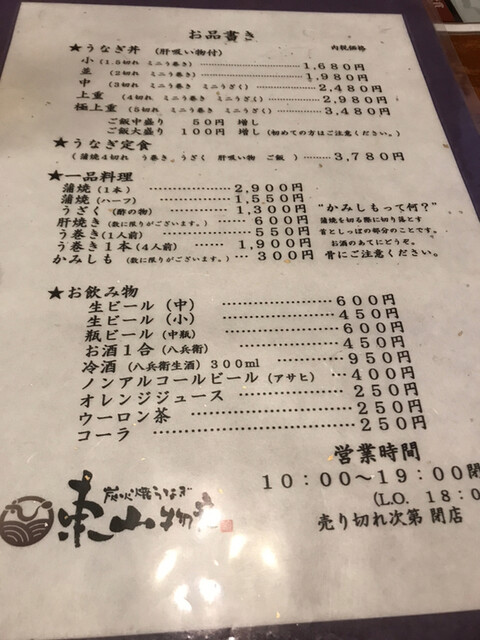 お品書き
★うなぎ丼 (肝吸い物付) 内税価格
小 (1.5切れ ミニう巻き) ………… 1,680円
並 (2切れ ミニう巻き) ………… 1,980円
中 (3切れ ミニう巻き ミニうざく) … 2,480円
上重 (4切れ ミニう巻き ミニうざく) … 2,980円
極上重 (5切れ ミニう巻き ミニうざく) … 3,480円
ご飯中盛り 50円 増し
ご飯大盛り 100円 増し (初めての方はご注意ください。)
★うなぎ定食
(蒲焼4切れ う巻き うざく 肝吸い物 ご飯) …… 3,780円
★一品料理
蒲焼 (1本) ………… 2,900円
蒲焼 (ハーフ) ………… 1,550円
うざく (酢の物) ………… 1,300円
肝焼き (数に限りがございます。) …… 600円
う巻き (1人前) ………… 550円
う巻き1本 (4人前) …… 1,900円
かみしも (数に限りがございます。) … 300円
“かみしもって何?”
蒲焼を切る際に切り落とす
首としっぽの部分のことです。
お酒のあてにどうぞ。
骨にご注意ください。
★お飲み物
生ビール (中) ……………… 600円
生ビール (小) ……………… 450円
瓶ビール (中瓶) ……………… 600円
お酒1合 (八兵衛) ……………… 450円
冷酒 (八兵衛生酒) 300ml ………… 950円
ノンアルコールビール (アサヒ) … 400円
オレンジジュース ……………… 250円
ウーロン茶 ……………… 250円
コーラ ……………… 250円
営業時間
10:00〜19:00閉
(L.O. 18:0
売り切れ次第 閉店
炭火焼うなぎ
東山物産